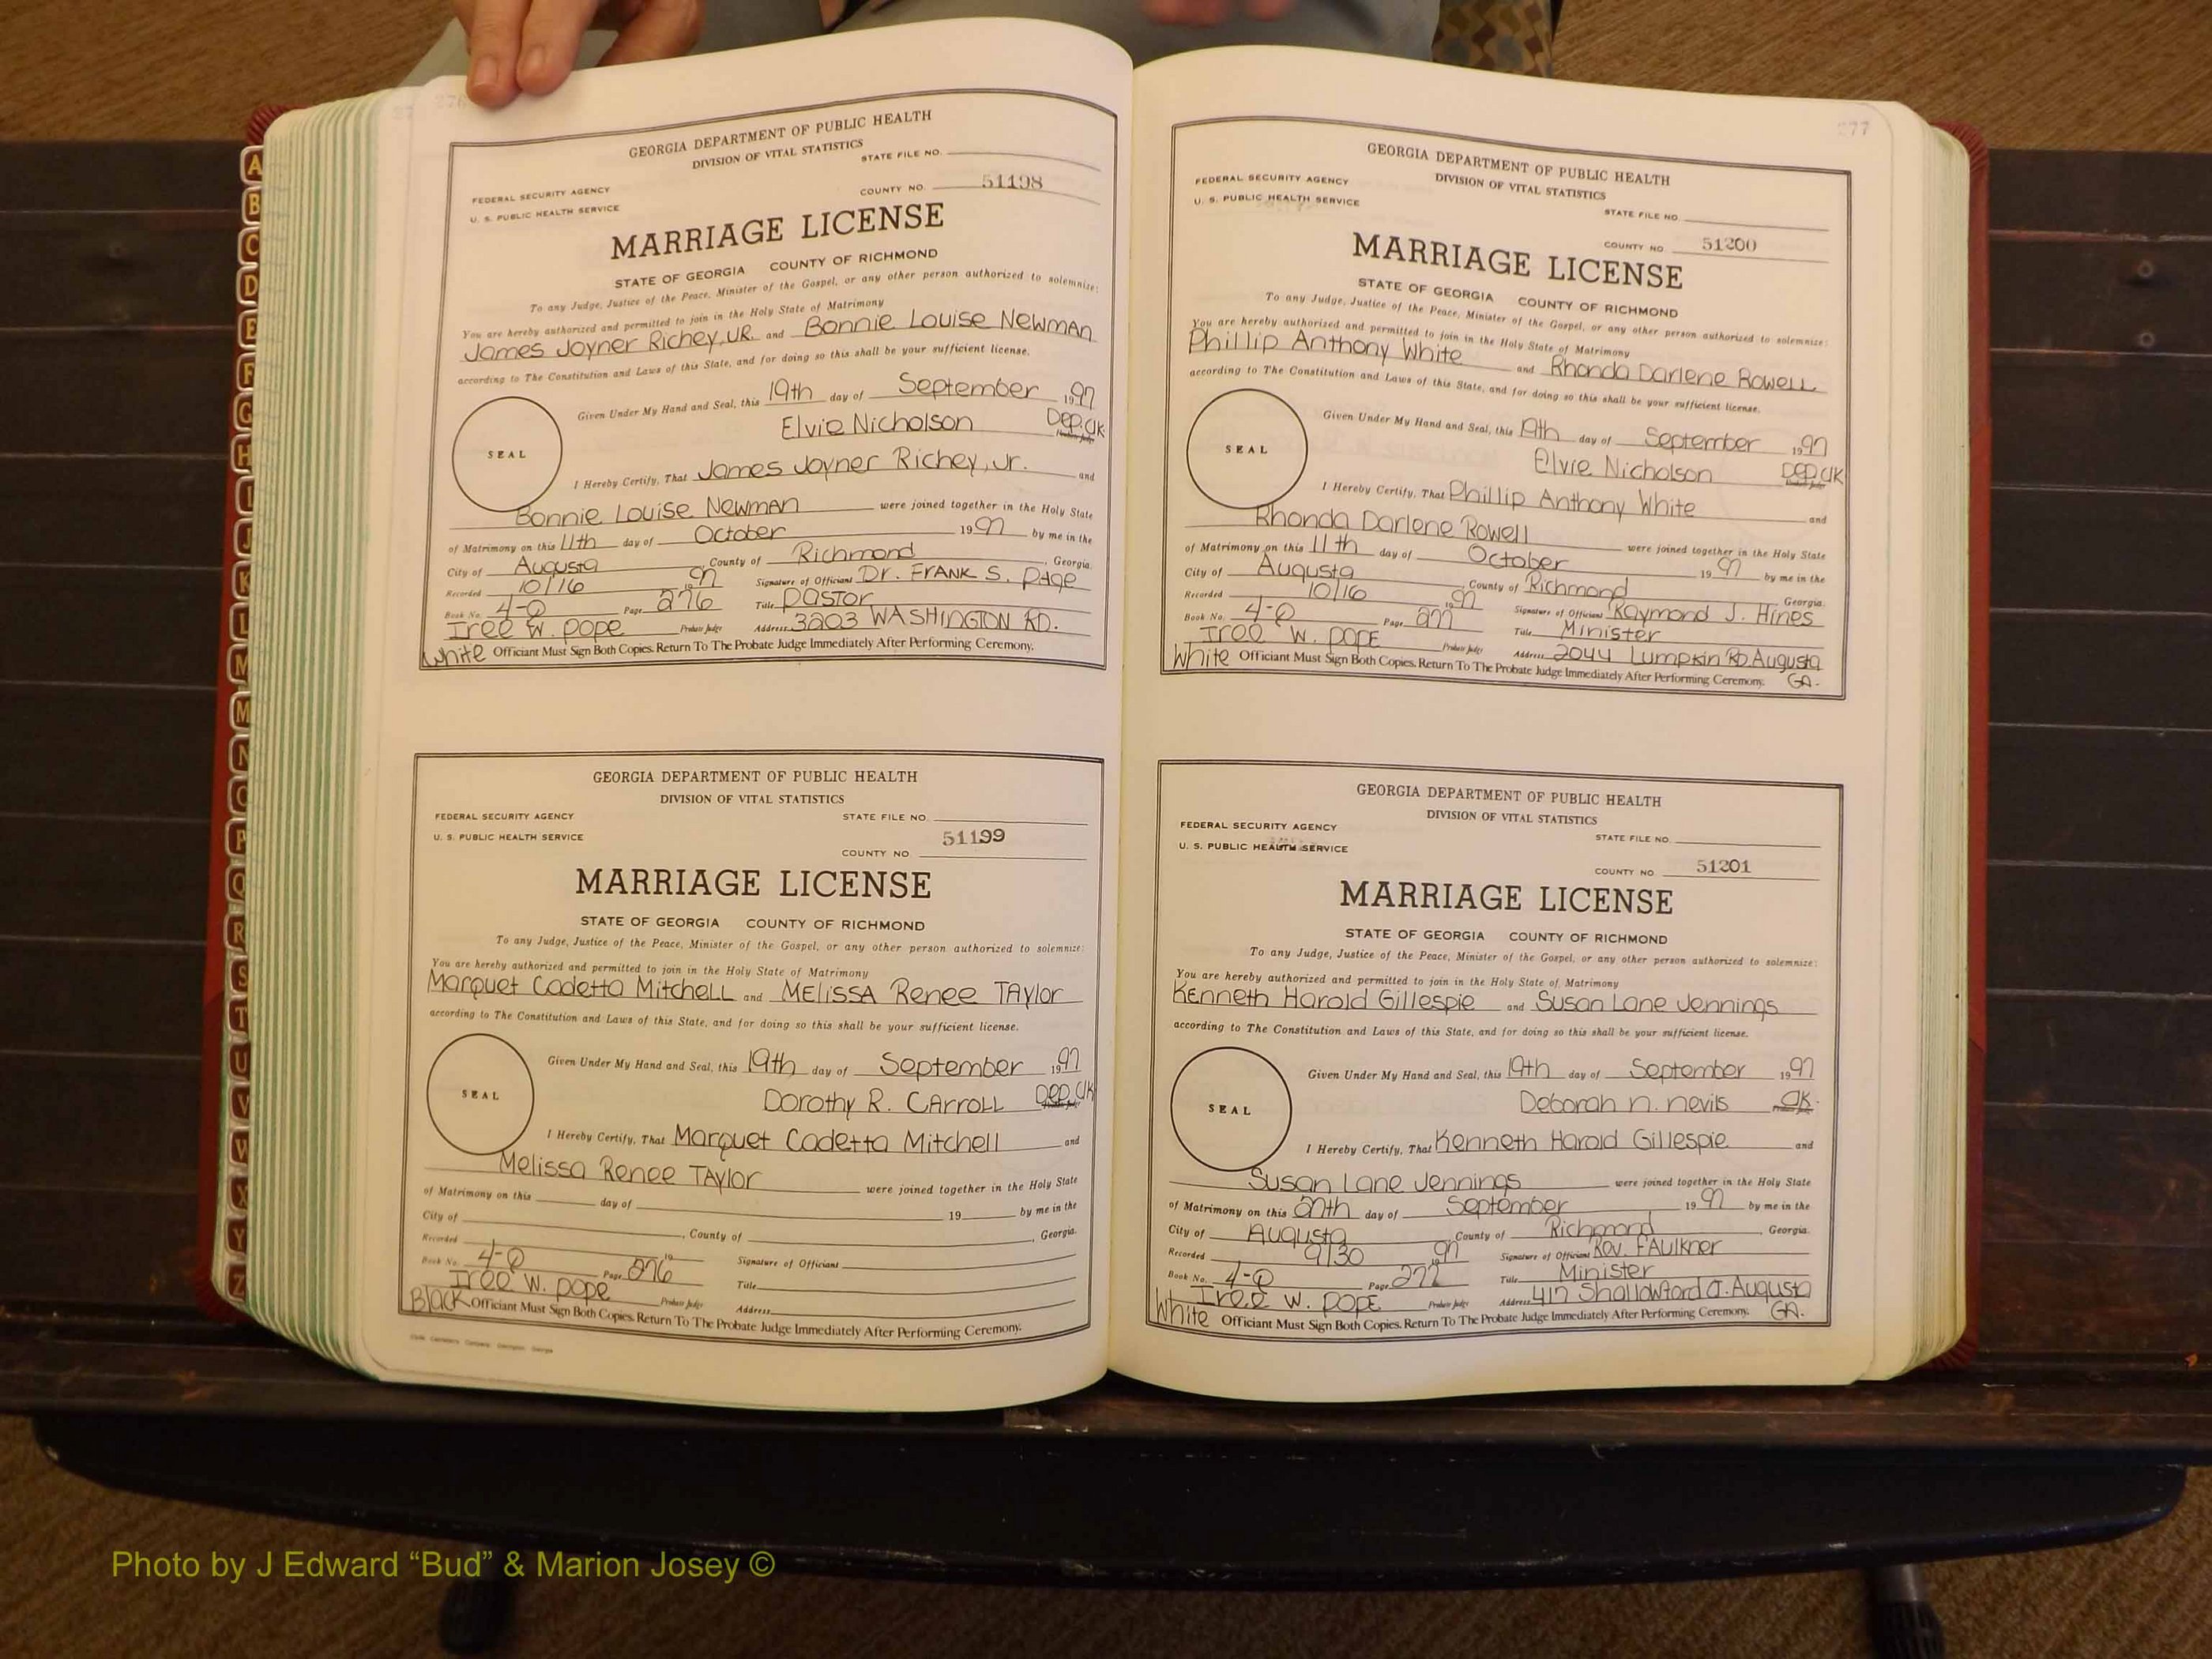 276
GEORGIA DEPARTMENT OF PUBLIC HEALTH
DIVISION OF VITAL STATISTICS
STATE FILE NO.
FEDERAL SECURITY AGENCY
COUNTY NO. 51198
U. S. PUBLIC HEALTH SERVICE
MARRIAGE LICENSE
STATE OF GEORGIA COUNTY OF RICHMOND
To any Judge, Justice of the Peace, Minister of the Gospel, or any other person authorized to solemnize:
You are hereby authorized and permitted to join in the Holy State of Matrimony
James Joyner Richey, JR. and Bonnie Louise Newman
according to The Constitution and Laws of this State, and for doing so this shall be your sufficient license.
Given Under My Hand and Seal, this 19th day of September 1997
Elvie Nicholson Dep. Clk
SEAL
I Hereby Certify, That James Joyner Richey, Jr. and
Bonnie Louise Newman were joined together in the Holy State
of Matrimony on this 11th day of October 1997 by me in the
City of Augusta, County of Richmond, Georgia.
Recorded 10/16 1997 Signature of Officiant Dr. Frank S. Page
Book No. 4-Q Page 276 Title Pastor
Iree W. Pope Probate Judge Address 3203 WASHINGTON RD.
White Officiant Must Sign Both Copies. Return To The Probate Judge Immediately After Performing Ceremony.
GEORGIA DEPARTMENT OF PUBLIC HEALTH
DIVISION OF VITAL STATISTICS
FEDERAL SECURITY AGENCY STATE FILE NO.
U. S. PUBLIC HEALTH SERVICE 51199
COUNTY NO.
MARRIAGE LICENSE
STATE OF GEORGIA COUNTY OF RICHMOND
To any Judge, Justice of the Peace, Minister of the Gospel, or any other person authorized to solemnize:
You are hereby authorized and permitted to join in the Holy State of Matrimony
Marquet Cadetta Mitchell and Melissa Renee Taylor
according to The Constitution and Laws of this State, and for doing so this shall be your sufficient license.
Given Under My Hand and Seal, this 19th day of September 1997
Dorothy R. Carroll Dep. Clk
SEAL
I Hereby Certify, That Marquet Cadetta Mitchell and
Melissa Renee Taylor were joined together in the Holy State
of Matrimony on this day of 19 by me in the
City of , County of , Georgia.
Recorded 19 Signature of Officiant
Book No. 4-Q Page 276 Title
Iree W. Pope Probate Judge Address
Black Officiant Must Sign Both Copies. Return To The Probate Judge Immediately After Performing Ceremony.
277
GEORGIA DEPARTMENT OF PUBLIC HEALTH
DIVISION OF VITAL STATISTICS
FEDERAL SECURITY AGENCY
U. S. PUBLIC HEALTH SERVICE
STATE FILE NO.
COUNTY NO 51200
MARRIAGE LICENSE
STATE OF GEORGIA COUNTY OF RICHMOND
To any Judge, Justice of the Peace, Minister of the Gospel, or any other person authorized to solemnize:
You are hereby authorized and permitted to join in the Holy State of Matrimony
Phillip Anthony White and Rhonda Darlene Rowell
according to The Constitution and Laws of this State, and for doing so this shall be your sufficient license.
Given Under My Hand and Seal, this 19th day of September 1997
Elvie Nicholson Dep. Clk
SEAL
I Hereby Certify, That Phillip Anthony White and
Rhonda Darlene Rowell were joined together in the Holy State
of Matrimony on this 11th day of October 1997 by me in the
City of Augusta, County of Richmond Georgia.
Recorded 10/16 1997 Signature of Officiant Raymond J. Hines
Book No. 4-Q Page 277 Title Minister
Iree W. Pope Probate Judge Address 2044 Lumpkin Rd. Augusta
White Officiant Must Sign Both Copies. Return To The Probate Judge Immediately After Performing Ceremony. GA.
GEORGIA DEPARTMENT OF PUBLIC HEALTH
DIVISION OF VITAL STATISTICS
FEDERAL SECURITY AGENCY
STATE FILE NO
U. S. PUBLIC HEALTH SERVICE
COUNTY NO 51201
MARRIAGE LICENSE
STATE OF GEORGIA COUNTY OF RICHMOND
To any Judge, Justice of the Peace, Minister of the Gospel, or any other person authorized to solemnize:
You are hereby authorized and permitted to join in the Holy State of Matrimony
Kenneth Harold Gillespie and Susan Lane Jennings
according to The Constitution and Laws of this State, and for doing so this shall be your sufficient license.
Given Under My Hand and Seal, this 19th day of September 1997
Deborah n. nevils Clk.
SEAL
I Hereby Certify, That Kenneth Harold Gillespie and
Susan Lane Jennings were joined together in the Holy State
of Matrimony on this 27th day of September 1997 by me in the
City of Augusta County of Richmond Georgia.
Recorded 9/30 1997 Signature of Officiant Rev. Faulkner
Book No. 4-Q Page 277 Title Minister
Iree W. Pope Probate Judge Address 417 Shallowford Ct. Augusta
White Officiant Must Sign Both Copies. Return To The Probate Judge Immediately After Performing Ceremony. GA.
A
B
C
D
E
F
G
H
I
J
K
L
M
M
N
O
P
Q
R
S
T
U
V
W
X
Y
Z
Photo by J Edward “Bud” & Marion Josey ©